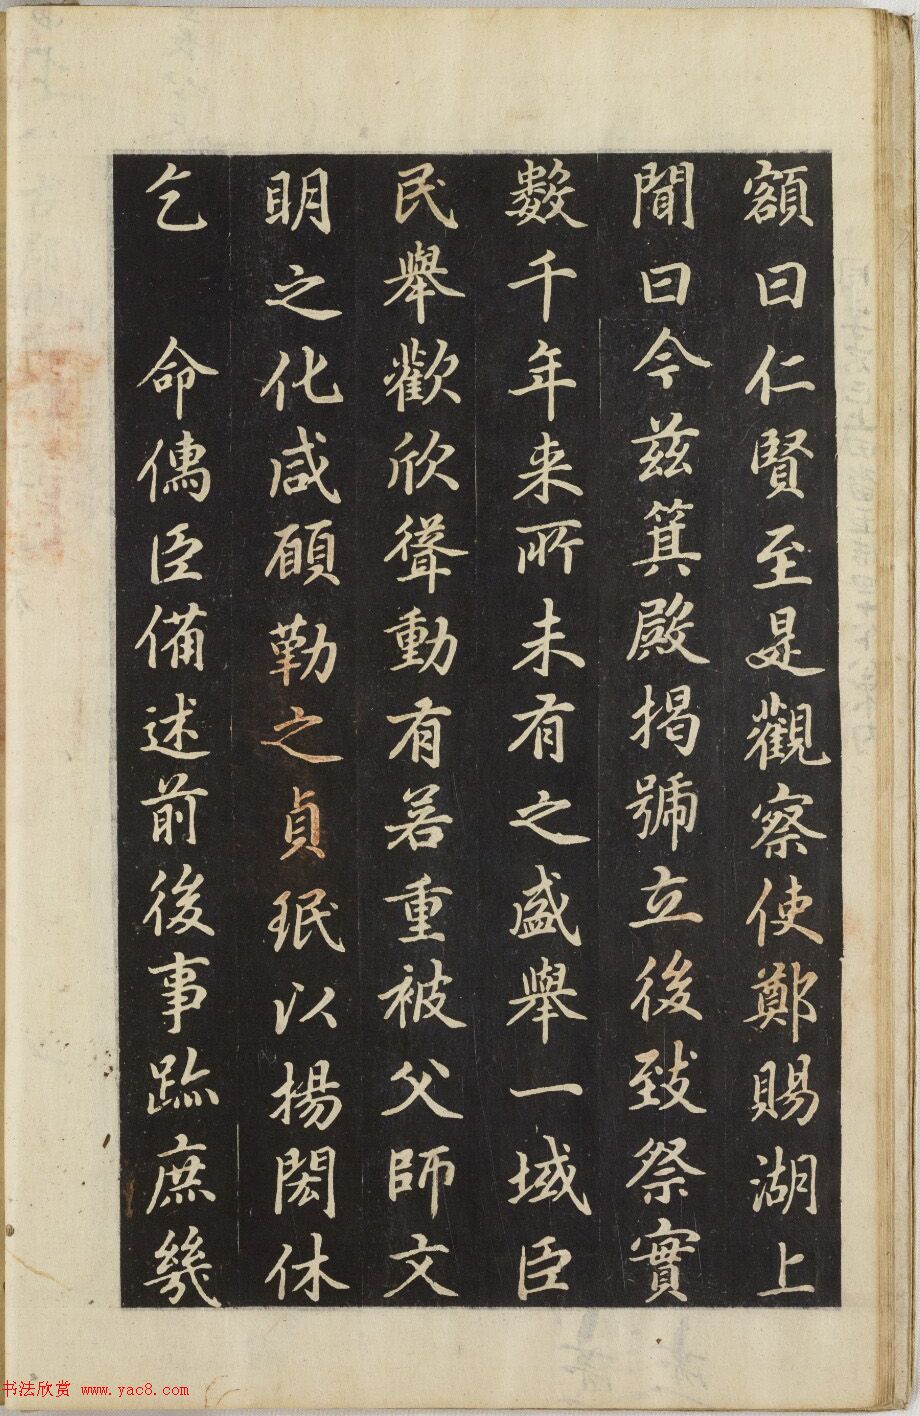 額曰仁賢至是觀察使鄭賜湖上
聞曰今茲箕殿揭號立後致祭實
數千年来所未有之盛舉一域臣
民舉歡欣聳動有若重被父師文
明之化咸願勒之貞珉以揚閎休
乞　命儁臣備述前後事跡庶幾
书法欣赏 www.yac8.com